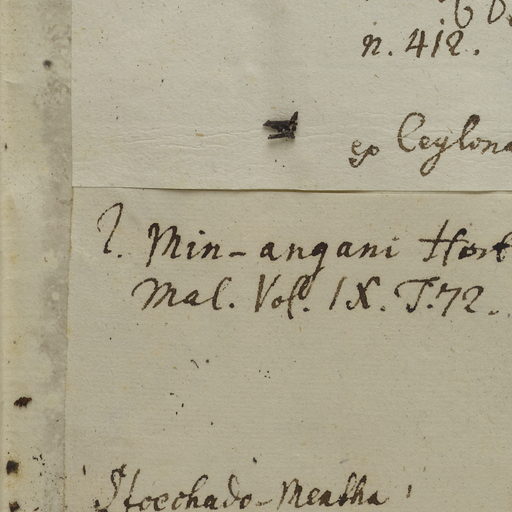 n. 412.
ex Ceylona
Min-angani Hort
Mal. Vol. IX. T. 72.
Stoechado-Mentha